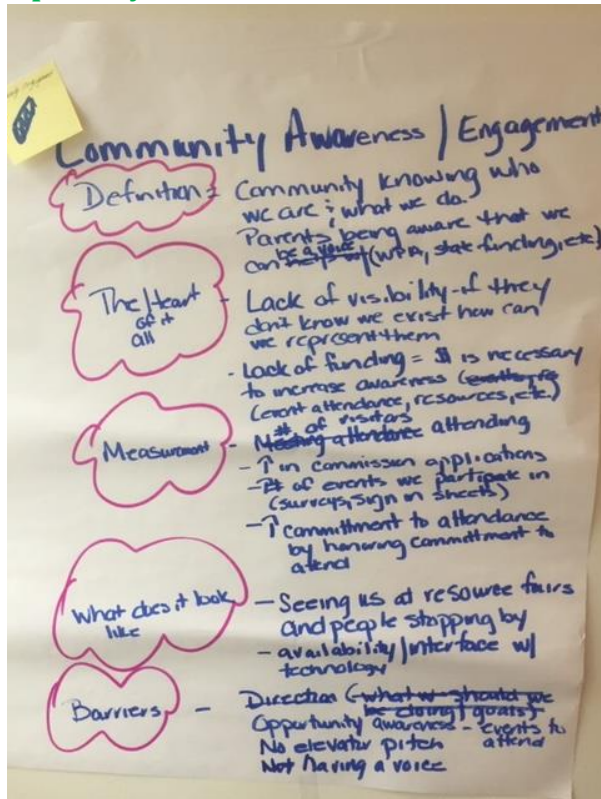 Community Awareness | Engagement
Definition = Community knowing who
we are & what we do.
Parents being aware that we
be a voice
can (WPR, state funding, etc)
The Heart - Lack of visibility - if they
of it don't know we exist how can
all we represent them
- Lack of funding = $ is necessary
to increase awareness
(event attendance, resources, etc.)
# of visitors
Measurement - Meeting attendance attending
- ↑ in commission applications
- # of events we participate in
(surveys, sign in sheets)
- ↑ committment to attendance
by honoring committment to
attend
What does it look - Seeing us at resource fairs
like and people stopping by
- availability/interface w/
technology
Barriers - Direction (what w should we
be doing/goals)
Opportunity awareness - events to
No elevator pitch attend
Not having a voice